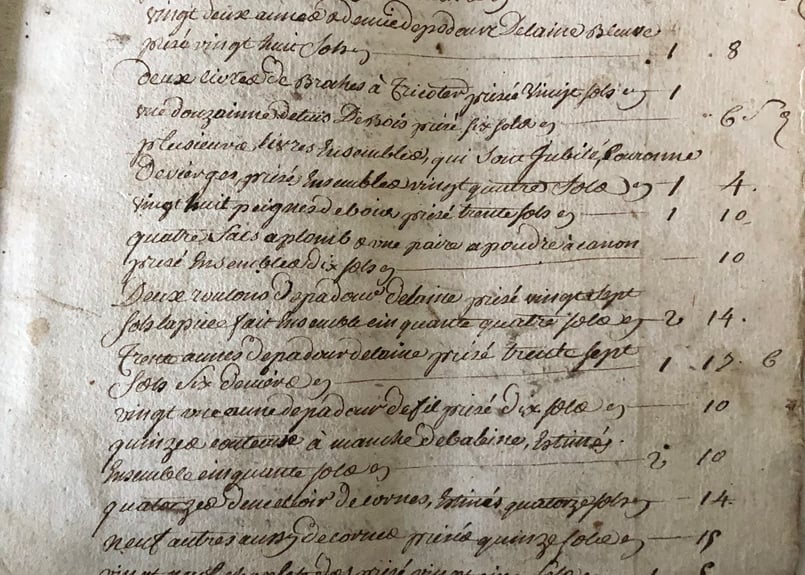 vingt deux aunes a demie de padour Delaine Bleuve
prisé vingt huit Sols 1 . 8
deux livres de Broches à Tricoter prisée Vingt sols 1
une douzainne detuis De Bois prisé six sols 6
plusieurs livres Ensembles, qui sont Jubilé, Couronne
De vierges, prisé Ensembles vingt quatre Sols 1 4.
vingt huit peignes de bois prisé trente sols 1 10
quatre Sacs a plomb une paire a poudre a canon
prisé Ensembles dix sols 10
Deux roulons De padour delaine prisé vingt sept
sols la piece fait Ensemble cinquante quatre sols 2 14.
Trente aunes de padour delaine prisé trente sept
Sols Six deniers 1 . 17. 6
vingt une aune de padour de fil prisé Dix sols 10
quinze couteaux à manche de baleine, Estimés.
Ensemble cinquante sols 2 10
quatorze de cornes, Estimés quatorze sols 14
neuf autres aussy de corne prisés quinze sols 15
vingt prisé vingt cinq sols 1 5